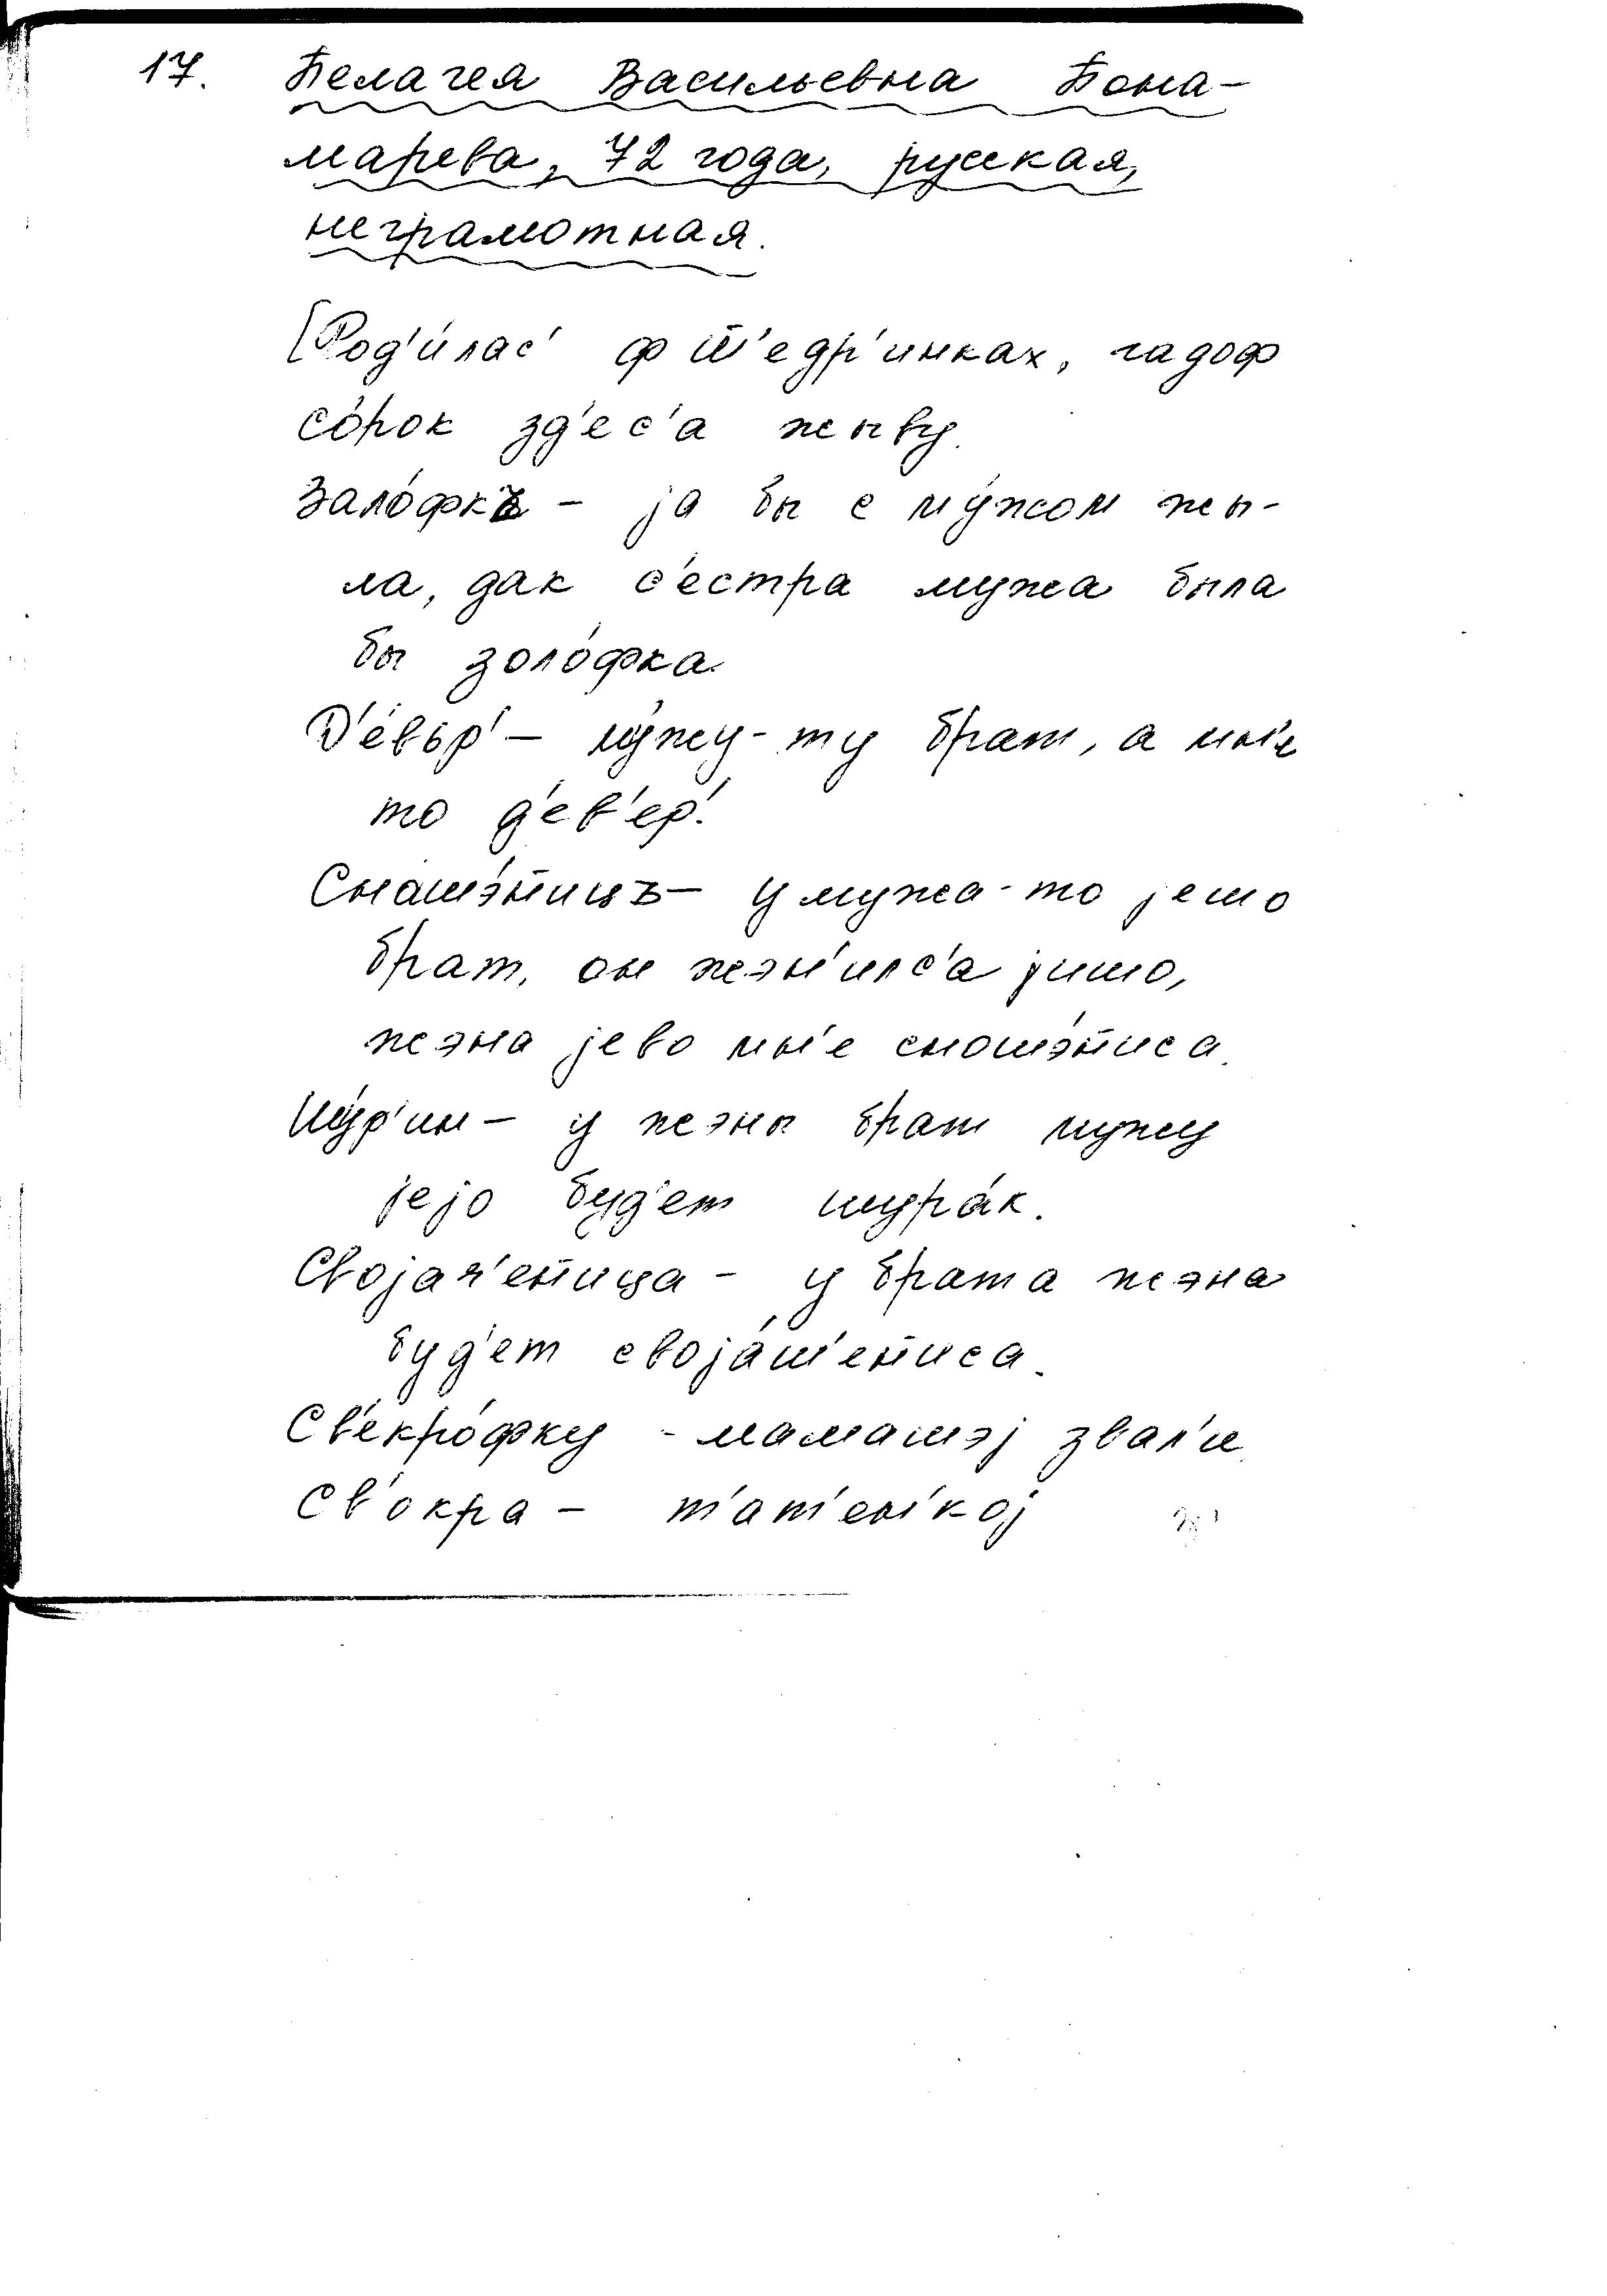 17. Пелагея Васильевна Пона-
марева, 72 года, русская,
неграмотная.
[Род'и́лас' ф Ш'едр'инках, гадоф
со́рок зд'ес'а жыву.
Зало́фкъ – ја бы с му́жом жы-
ла, дак с'естра мужа была
бы золо́фка.
Д'е́вьр' – му́жу-ту брат, а мн'е
то д'ев'ер'.
Сношэ́н'ицъ – у мужа-то јешо
брат, он жэн'илс'а јишо,
жэна јево мн'е сношэ́н'иса.
Шу́р'ин – у жэны брат мужу
јејо буд'ет шура́к.
Својач'ен'ица – у брата жэна
буд'ет своја́ш'ен'иса.
Св'екро́фку - мамашэј звал'и.
Св'окра – т'ат'ен'кој